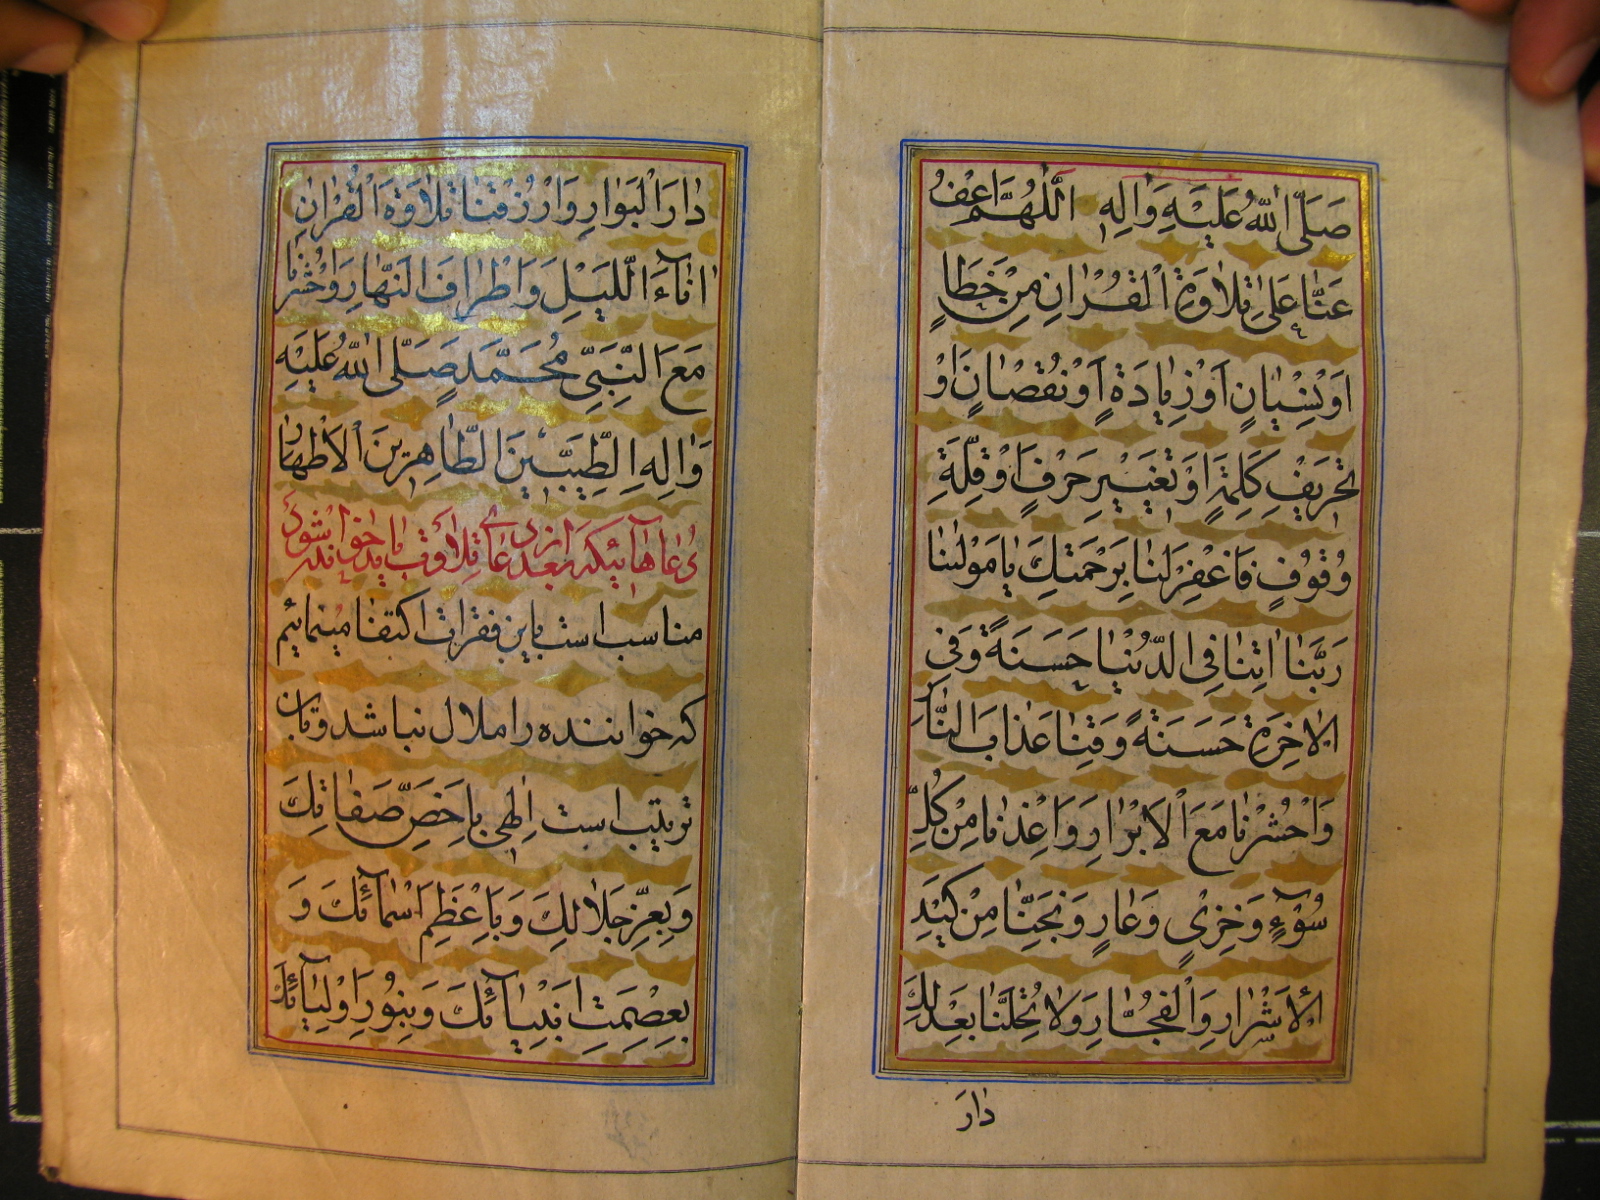 صَلَّى اللّٰهُ عَلَيْهِ وَاٰلِهٖ اَللّٰهُمَّ اعْفُ
عَنَّا عَلٰى تِلَاوَةِ الْقُرْاٰنِ مِنْ خَطَاٍ
اَوْ نِسْيَانٍ اَوْ زِيَادَةٍ اَوْ نُقْصَانٍ اَوْ
تَحْرِيْفِ كَلِمَةٍ اَوْ تَغْيِيْرِ حَرْفٍ اَوْ قِلَّةِ
وُقُوْفٍ فَاغْفِرْ لَنَا بِرَحْمَتِكَ يَا مَوْلٰينَا
رَبَّنَا اٰتِنَا فِى الدُّنْيَا حَسَنَةً وَفِى
الْاٰخِرَةِ حَسَنَةً وَقِنَا عَذَابَ النَّارِ
وَاحْشُرْنَا مَعَ الْاَبْرَارِ وَاَعِذْنَا مِنْ كُلِّ
سُوْٓءٍ وَخِزْىٍ وَعَارٍ وَنَجِّنَا مِنْ كَيْدِ
الْاَشْرَارِ وَالْفُجَّارِ وَلَا تُحِلَّنَا بَعْدَ ذٰلِكَ
دَارَ
دَارَ الْبَوَارِ وَارْزُقْنَا تِلَاوَةَ الْقُرْاٰنِ
اٰنَآءَ اللَّيْلِ وَاَطْرَافَ النَّهَارِ وَاحْشُرْنَا
مَعَ النَّبِىِّ مُحَمَّدٍ صَلَّى اللّٰهُ عَلَيْهِ
وَاٰلِهِ الطَّيِّبِيْنَ الطَّاهِرِيْنَ الْاَطْهَارِ
دُعَاهَائیکه بعد از دعای تلاوت باید خوانده شود
مناسب است باین فقرات اکتفا مینمائیم
که خواننده را ملال نباشد و بآن
ترتیب است اِلٰهِى بِاَخَصِّ صِفَاتِكَ
وَبِعِزِّ جَلَالِكَ وَبِاَعْظَمِ اَسْمَآئِكَ وَ
بِعِصْمَتِ اَنْبِيَآئِكَ وَبِنُوْرِ اَوْلِيَآئِكَ